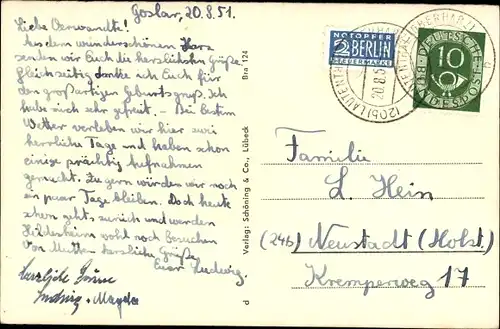 Goslar, 20.8.51.
Liebe Verwandte!
Aus dem wunderschönen Harz
senden wir Euch die herzlichsten Grüße.
Gleichzeitig danke ich Euch für
den großartigen Geburtsgruß. Ich
habe mich sehr gefreut. Bei bestem
Wetter verleben wir hier zwei
herrliche Tage und haben schon
einige prächtig Aufnahmen
gemacht. Zu gern würden wir noch
ein paar Tage bleiben. Doch heute
schon geht's zurück und werden
Hildesheim wohl noch besuchen
Von Mutter herzliche Grüße,
Euer Ludwig.
Herzliche Grüsse
Ludwig + Magda
Verlag: Schöning & Co., Lübeck
Bra 124
d
NOTOPFER
2 BERLIN
STEUERMARKE
DEUTSCHE BUNDESPOST
10
20.8.5
(20b) LAUTENTHAL
Familie
L. Hein
(24b) Neustadt (Holst.)
Kremperweg 17